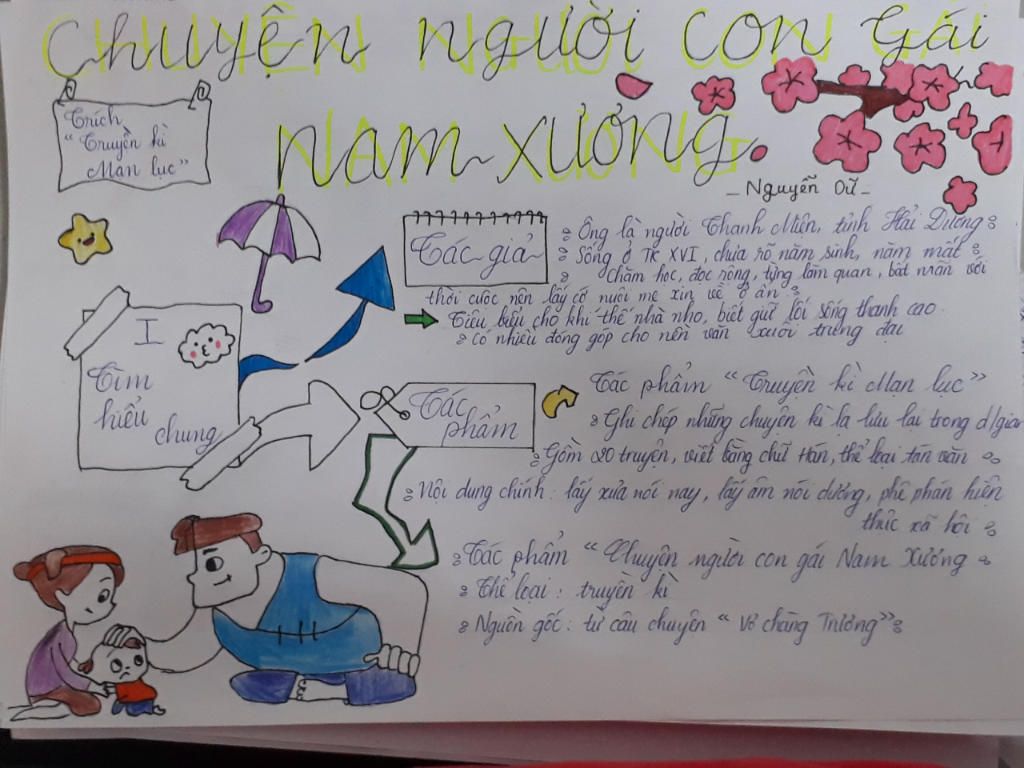 Chuyện người con gái
Nam Xương.
Trích
"Truyền kì
Mạn lục"
_ Nguyễn Dữ _
Tác giả
Ông là người Thanh Miên, tỉnh Hải Dương
Sống ở TK XVI, chưa rõ năm sinh, năm mất
chăm học, đọc rộng, từng làm quan, bất mãn với
thời cuộc nên lấy cớ nuôi mẹ xin về ở ẩn
Tiêu biểu cho khí thế nhà nho, biết giữ lối sống thanh cao.
có nhiều đóng góp cho nền văn xuôi trung đại
I
Tìm
hiểu
chung
Tác
phẩm
Tác phẩm "Truyền kì Mạn lục"
Ghi chép những chuyện kì lạ lưu lại trong d/gian
Gồm 20 truyện, viết bằng chữ Hán, thể loại tản văn
Nội dung chính: lấy xưa nói nay, lấy âm nói dương, phê phán hiện
thực xã hội
Tác phẩm "Chuyện người con gái Nam Xương
Thể loại: truyền kì
Nguồn gốc: từ câu chuyện "Vợ chàng Trương"